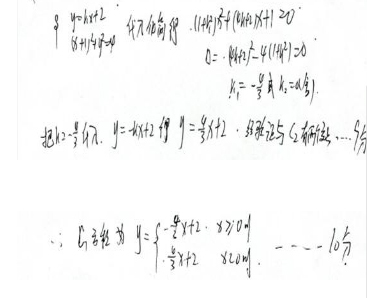 { y=kx+2
(x+1)²+y²=4 代入化简得 (1+k²)x²+(4k+2)x+1=0
Δ=(4k+2)²-4(1+k²)=0
k₁=-4/3 或 k₂=0(舍).
把k=-4/3代入. y=-kx+2 得 y=4/3x+2. 经验证与C₂有两个交点 ……9分
∴ C₁方程为 y={ -4/3x+2. x≥0时
4/3x+2 x<0时. ----10分